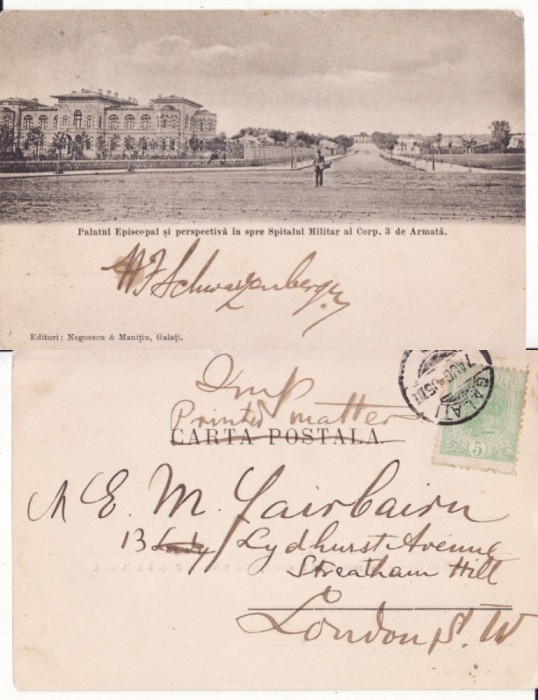 Palatul Episcopal și perspectivă în spre Spitalul Militar al Corp. 3 de Armată.
H F Schwarzenberg
Editori: Negoescu & Manițiu, Galați.
Imp
Printed matter
CARTA POSTALA
GALATI
7 AUG
5
M E. M. Fairbairn
13 Lady Lydhurst Avenue
Streatham Hill
London S. W